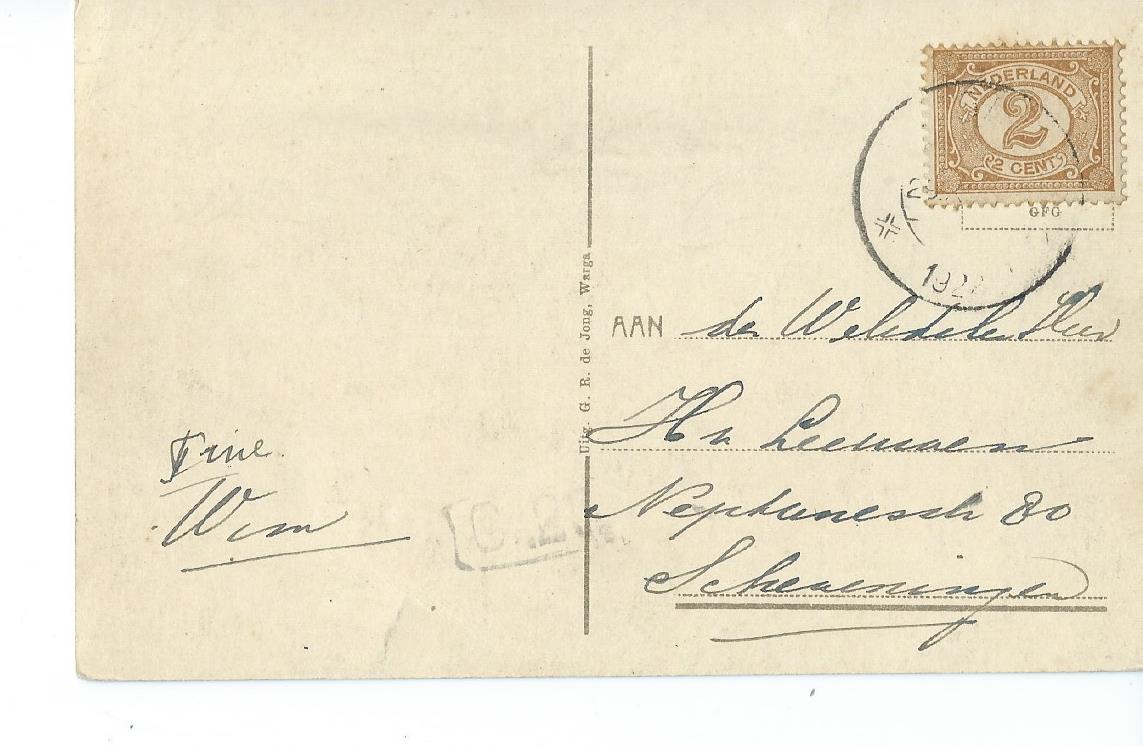 NEDERLAND
2
2 CENT
GFG
192
Uitg. G. R. de Jong, Warga
AAN den WelEdelen Heer
Hr Leemaen
Neptunesstr 80
Scheveningen
Fine
Wim